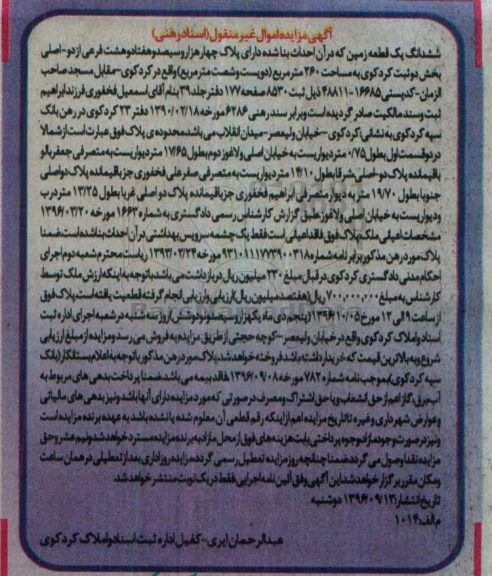 آگهی مزایده اموال غیر منقول (اسناد رهنی)
ششدانگ یک قطعه زمین که در آن احداث بنا شده دارای پلاک چهار هزار و سیصد و هفتاد و هشت فرعی از دو-اصلی
بخش دو ثبت کردکوی به مساحت ۲۶۰ متر مربع (دویست و شصت متر مربع) واقع در کردکوی-مقابل مسجد صاحب
الزمان-کدپستی ۱۶۶۸۵-۴۸۸۱۱ ذیل ثبت ۸۵۳۰ صفحه ۱۷۷ دفتر جلد ۳۹ بنام آقای اسمعیل فخفوری فرزند ابراهیم
ثبت و سند مالکیت صادر گردیده است و برابر سند رهنی ۶۲۸۶ مورخه ۱۳۹۰/۰۲/۱۸ دفتر ۲۳ کردکوی در رهن بانک
سپه کردکوی به نشانی کردکوی-خیابان ولیعصر-میدان انقلاب می باشد محدوده ی پلاک فوق عبارت است از شمالا
در دو قسمت اول بطول ۰/۷۵ متر دیواریست به خیابان اصلی ولاغوز دوم بطول ۱۷/۶۵ متر دیواریست به متصرفی جعفر بالو
باقیمانده پلاک دو-اصلی شرقا بطول ۱۴/۱۰ متر دیواریست به متصرفی صفر علی فخفوری جز باقیمانده پلاک دو اصلی
جنوبا بطول ۱۹/۷۰ متر به دیوار متصرفی ابراهیم فخفوری جز باقیمانده پلاک دو اصلی غربا بطول ۱۳/۲۵ متر درب
و دیواریست به خیابان اصلی ولاغوز طبق گزارش کارشناس رسمی دادگستری به شماره ۱۶۶۳ مورخه ۱۳۹۶/۰۳/۲۰
مشخصات اعیانی ملک پلاک فوق فاقد اعیانی است فقط یک چشمه سرویس بهداشتی در آن احداث شده است ضمنا
پلاک مورد رهن مذکور برابر نامه شماره ۹۳۱۰۱۱۱۷۷۳۹۰۰۳۱۸ مورخه ۱۳۹۳/۰۲/۲۴ ریاست محترم شعبه دوم اجرای
احکام مدنی دادگستری کردکوی در قبال مبلغ ۲۳۰ میلیون ریال در بازداشت می باشد با توجه به اینکه ارزش ملک توسط
کارشناس به مبلغ ۷۰۰,۰۰۰,۰۰۰ ریال (هفتصد میلیون ریال) ارزیابی و ارزیابی انجام گرفته قطعیت یافته است پلاک فوق
از ساعت ۹ الی ۱۲ مورخ ۱۳۹۶/۱۰/۰۵ (پنجم دی ماه یکهزار و سیصد و نود و شش) روز سه شنبه در شعبه اجرای اداره ثبت
اسناد و املاک کردکوی واقع در خیابان ولیعصر-کوچه حججی از طریق مزایده به فروش می رسد و مزایده از مبلغ ارزیابی
شروع و به بالاترین قیمت که خریدار داشته باشد فروخته خواهد شد پلاک مورد رهن مذکور با توجه به اعلام بستانکار (بانک
سپه کردکوی) بموجب نامه شماره ۷۸۲ مورخه ۱۳۹۶/۰۹/۰۸ فاقد بیمه می باشد ضمنا پرداخت بدهی های مربوط به
آب، برق، گاز اعم از حق انشعاب و یا حق اشتراک و مصرف در صورتی که مورد مزایده دارای آنها باشد و نیز بدهی های مالیاتی
و عوارض شهرداری و غیره تا تاریخ مزایده اعم از اینکه رقم قطعی آن معلوم شده یا نشده باشد به عهده برنده مزایده است
و نیز در صورت وجود مازاد وجوه پرداختی بابت هزینه های فوق از محل مازاد به برنده مزایده مسترد خواهد شد و نیم عشر و حق
مزایده نقدا وصول می گردد ضمنا چنانچه روز مزایده تعطیل رسمی گردد، مزایده روز اداری بعد از تعطیلی در همان ساعت
و مکان مقرر برگزار خواهد شد این آگهی وفق آئین نامه اجرایی فقط در یک نوبت منتشر خواهد شد.
تاریخ انتشار: ۱۳۹۶/۰۹/۱۳ دوشنبه
م.الف: ۱۰۱۴
عبدالرحمان ایری-کفیل اداره ثبت اسناد و املاک کردکوی